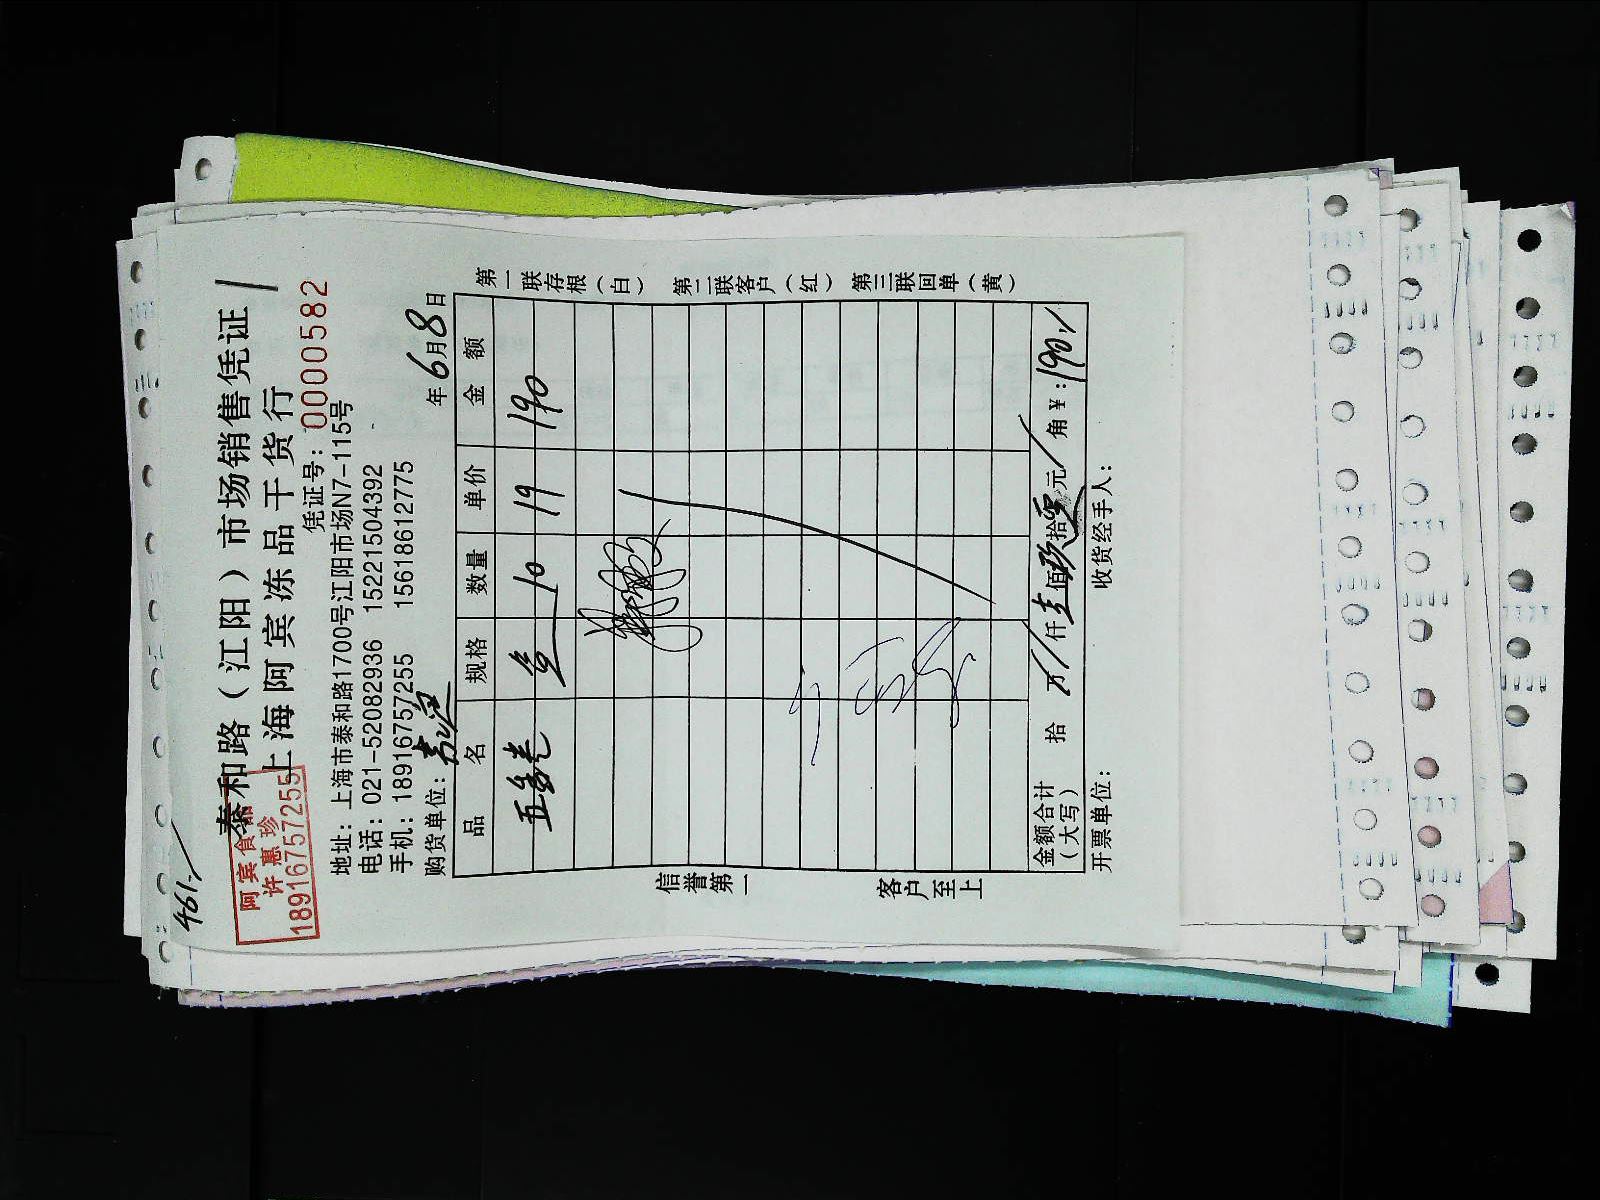 461
泰和路（江阳）市场销售凭证
上海阿宾冻品干货行
阿宾食品
许惠珍
18916757255
凭证号：0000582
地址：上海市泰和路1700号江阳市场N7-115号
电话：021-52082936 15221504392
手机：18916757255 15618612775
购货单位：
年6月8日
品名 规格 数量 单价 金额
10 19 190
信誉第一 客户至上
第一联存根（白） 第二联客户（红） 第三联回单（黄）
金额合计（大写） 拾 万 仟 壹佰玖拾 元 角 ￥：190
开票单位： 收货经手人：